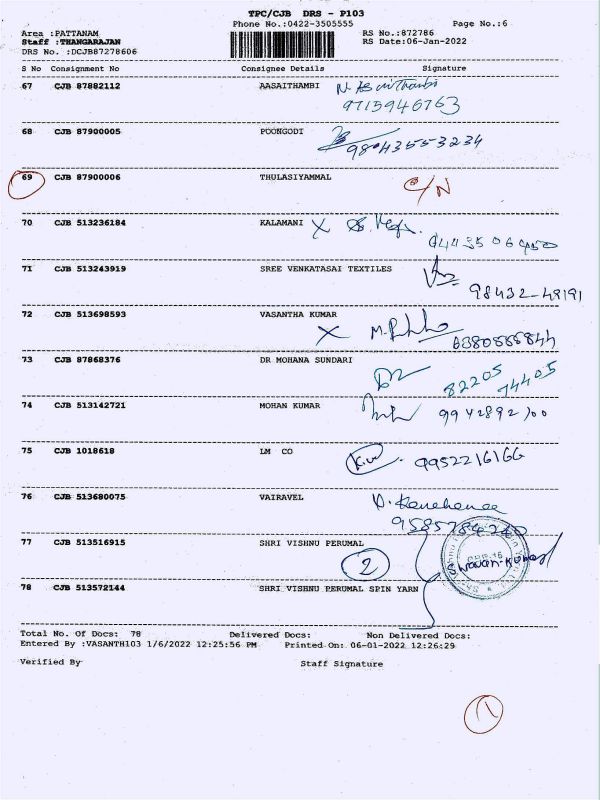 TPC/CJB DRS - P103
Phone No.:0422-3505555 Page No.:6
Area :PATTANAM RS No.:872786
Staff :THANGARAJAN RS Date:06-Jan-2022
DRS No. :DCJB87278606
S No Consignment No Consignee Details Signature
67 CJB 87882112 AASAITHAMBI
9715946763
68 CJB 87900005 POONGODI
9804355 3234
69 CJB 87900006 THULASIYAMMAL C/N
70 CJB 513236184 KALAMANI X
71 CJB 513243919 SREE VENKATASAI TEXTILES
98432-49191
72 CJB 513698593 VASANTHA KUMAR X
73 CJB 87868376 DR MOHANA SUNDARI
82205 74405
74 CJB 513142721 MOHAN KUMAR 9942892100
75 CJB 1018618 LM CO 9952216166
76 CJB 513680075 VAIRAVEL
77 CJB 513516915 SHRI VISHNU PERUMAL
2
78 CJB 513572144 SHRI VISHNU PERUMAL SPIN YARN
Total No. Of Docs: 78 Delivered Docs: Non Delivered Docs:
Entered By :VASANTH103 1/6/2022 12:25:56 PM Printed On: 06-01-2022 12:26:29
Verified By Staff Signature